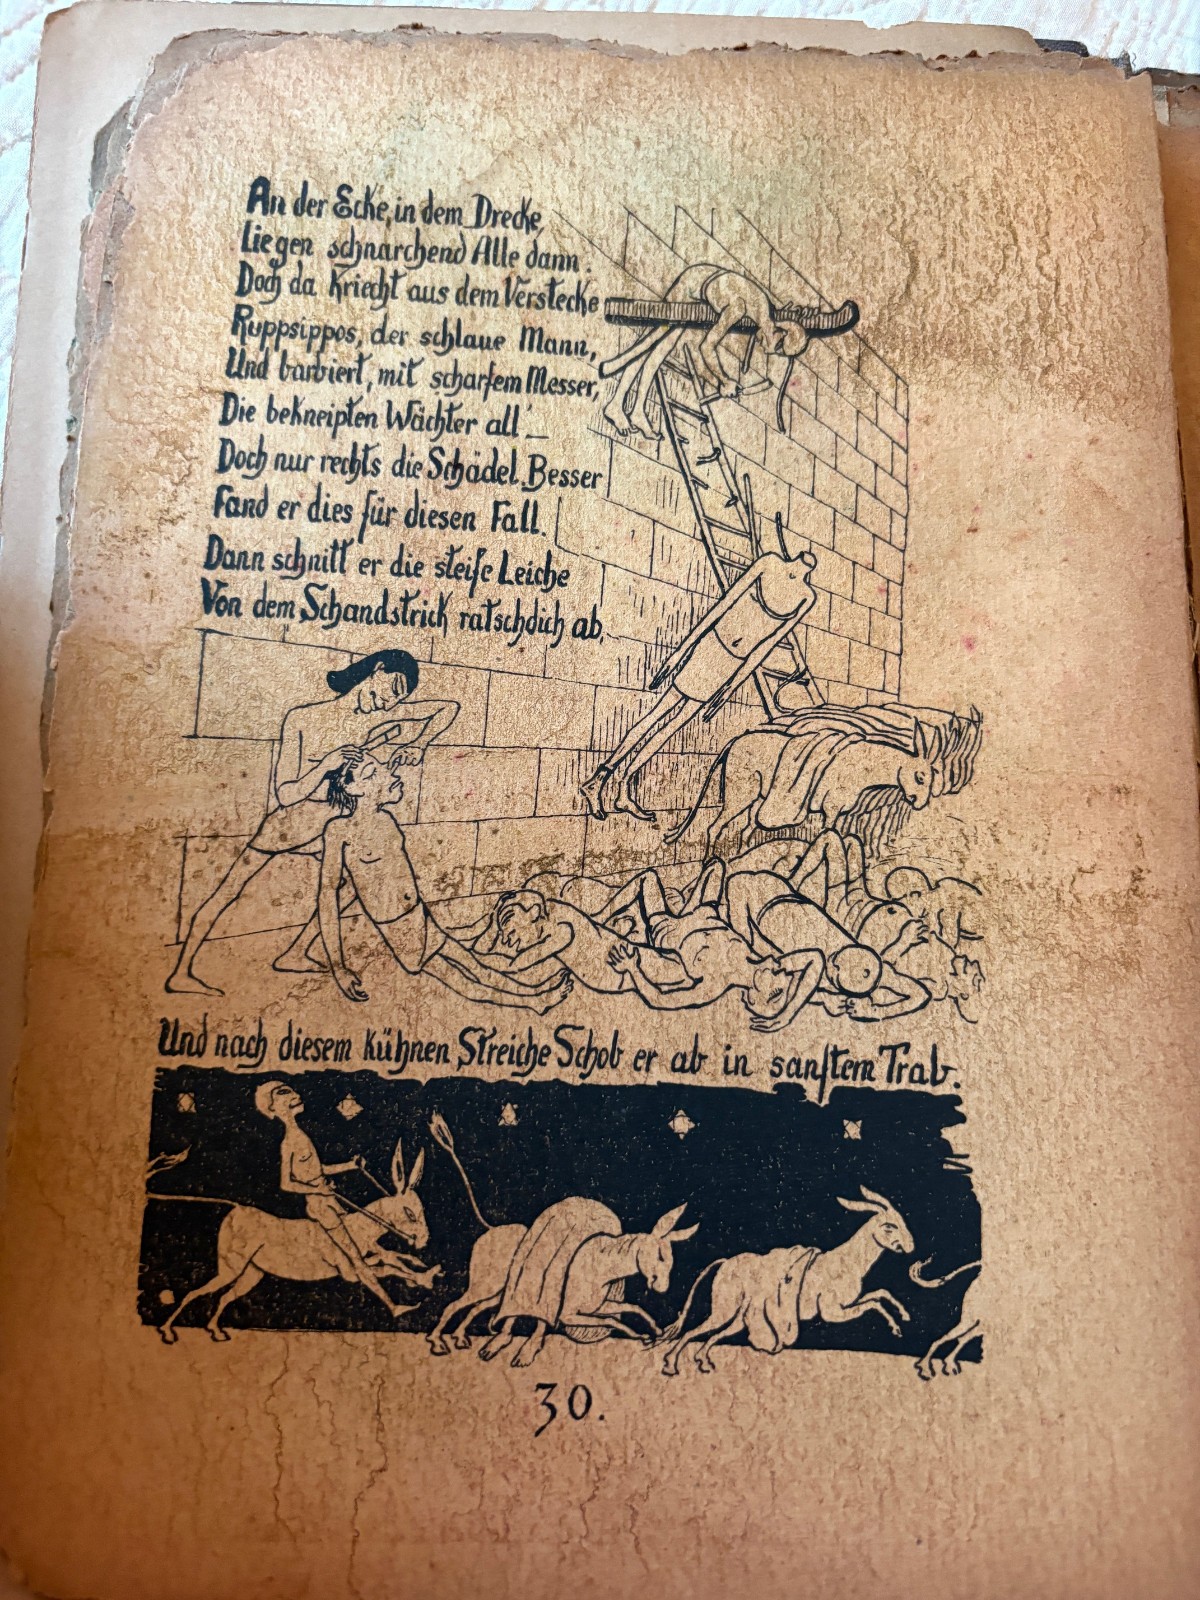 An der Ecke, in dem Drecke,
Liegen schnarchend Alle dann.
Doch da kriecht aus dem Verstecke
Ruppsippos, der schlaue Mann,
Und barbiert, mit scharfem Messer,
Die bekneipten Wächter all' –
Doch nur rechts die Schädel. Besser
Fand er dies für diesen Fall.
Dann schnitt er die steife Leiche
Von dem Schandstrick ratschdich ab,
Und nach diesem kühnen Streiche Schob er ab in sanftem Trab.
30.